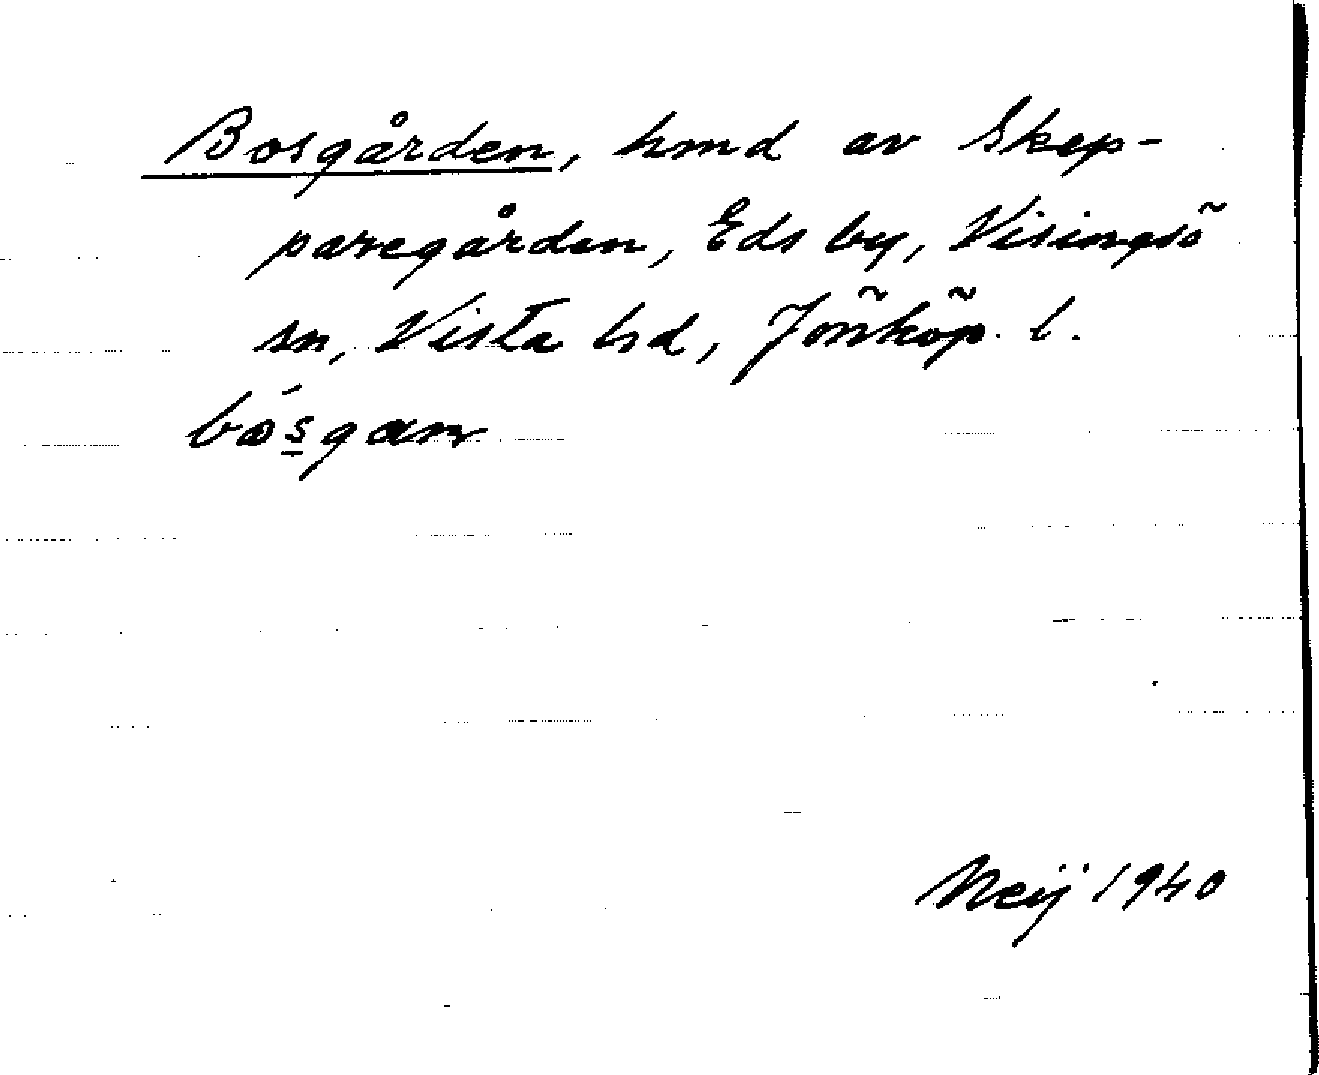 Bosgården, hmd av Skep-
paregården, Eds by, Visingsö
sn, Vista hd, Jönköp. l.
bósgan
Neij 1940